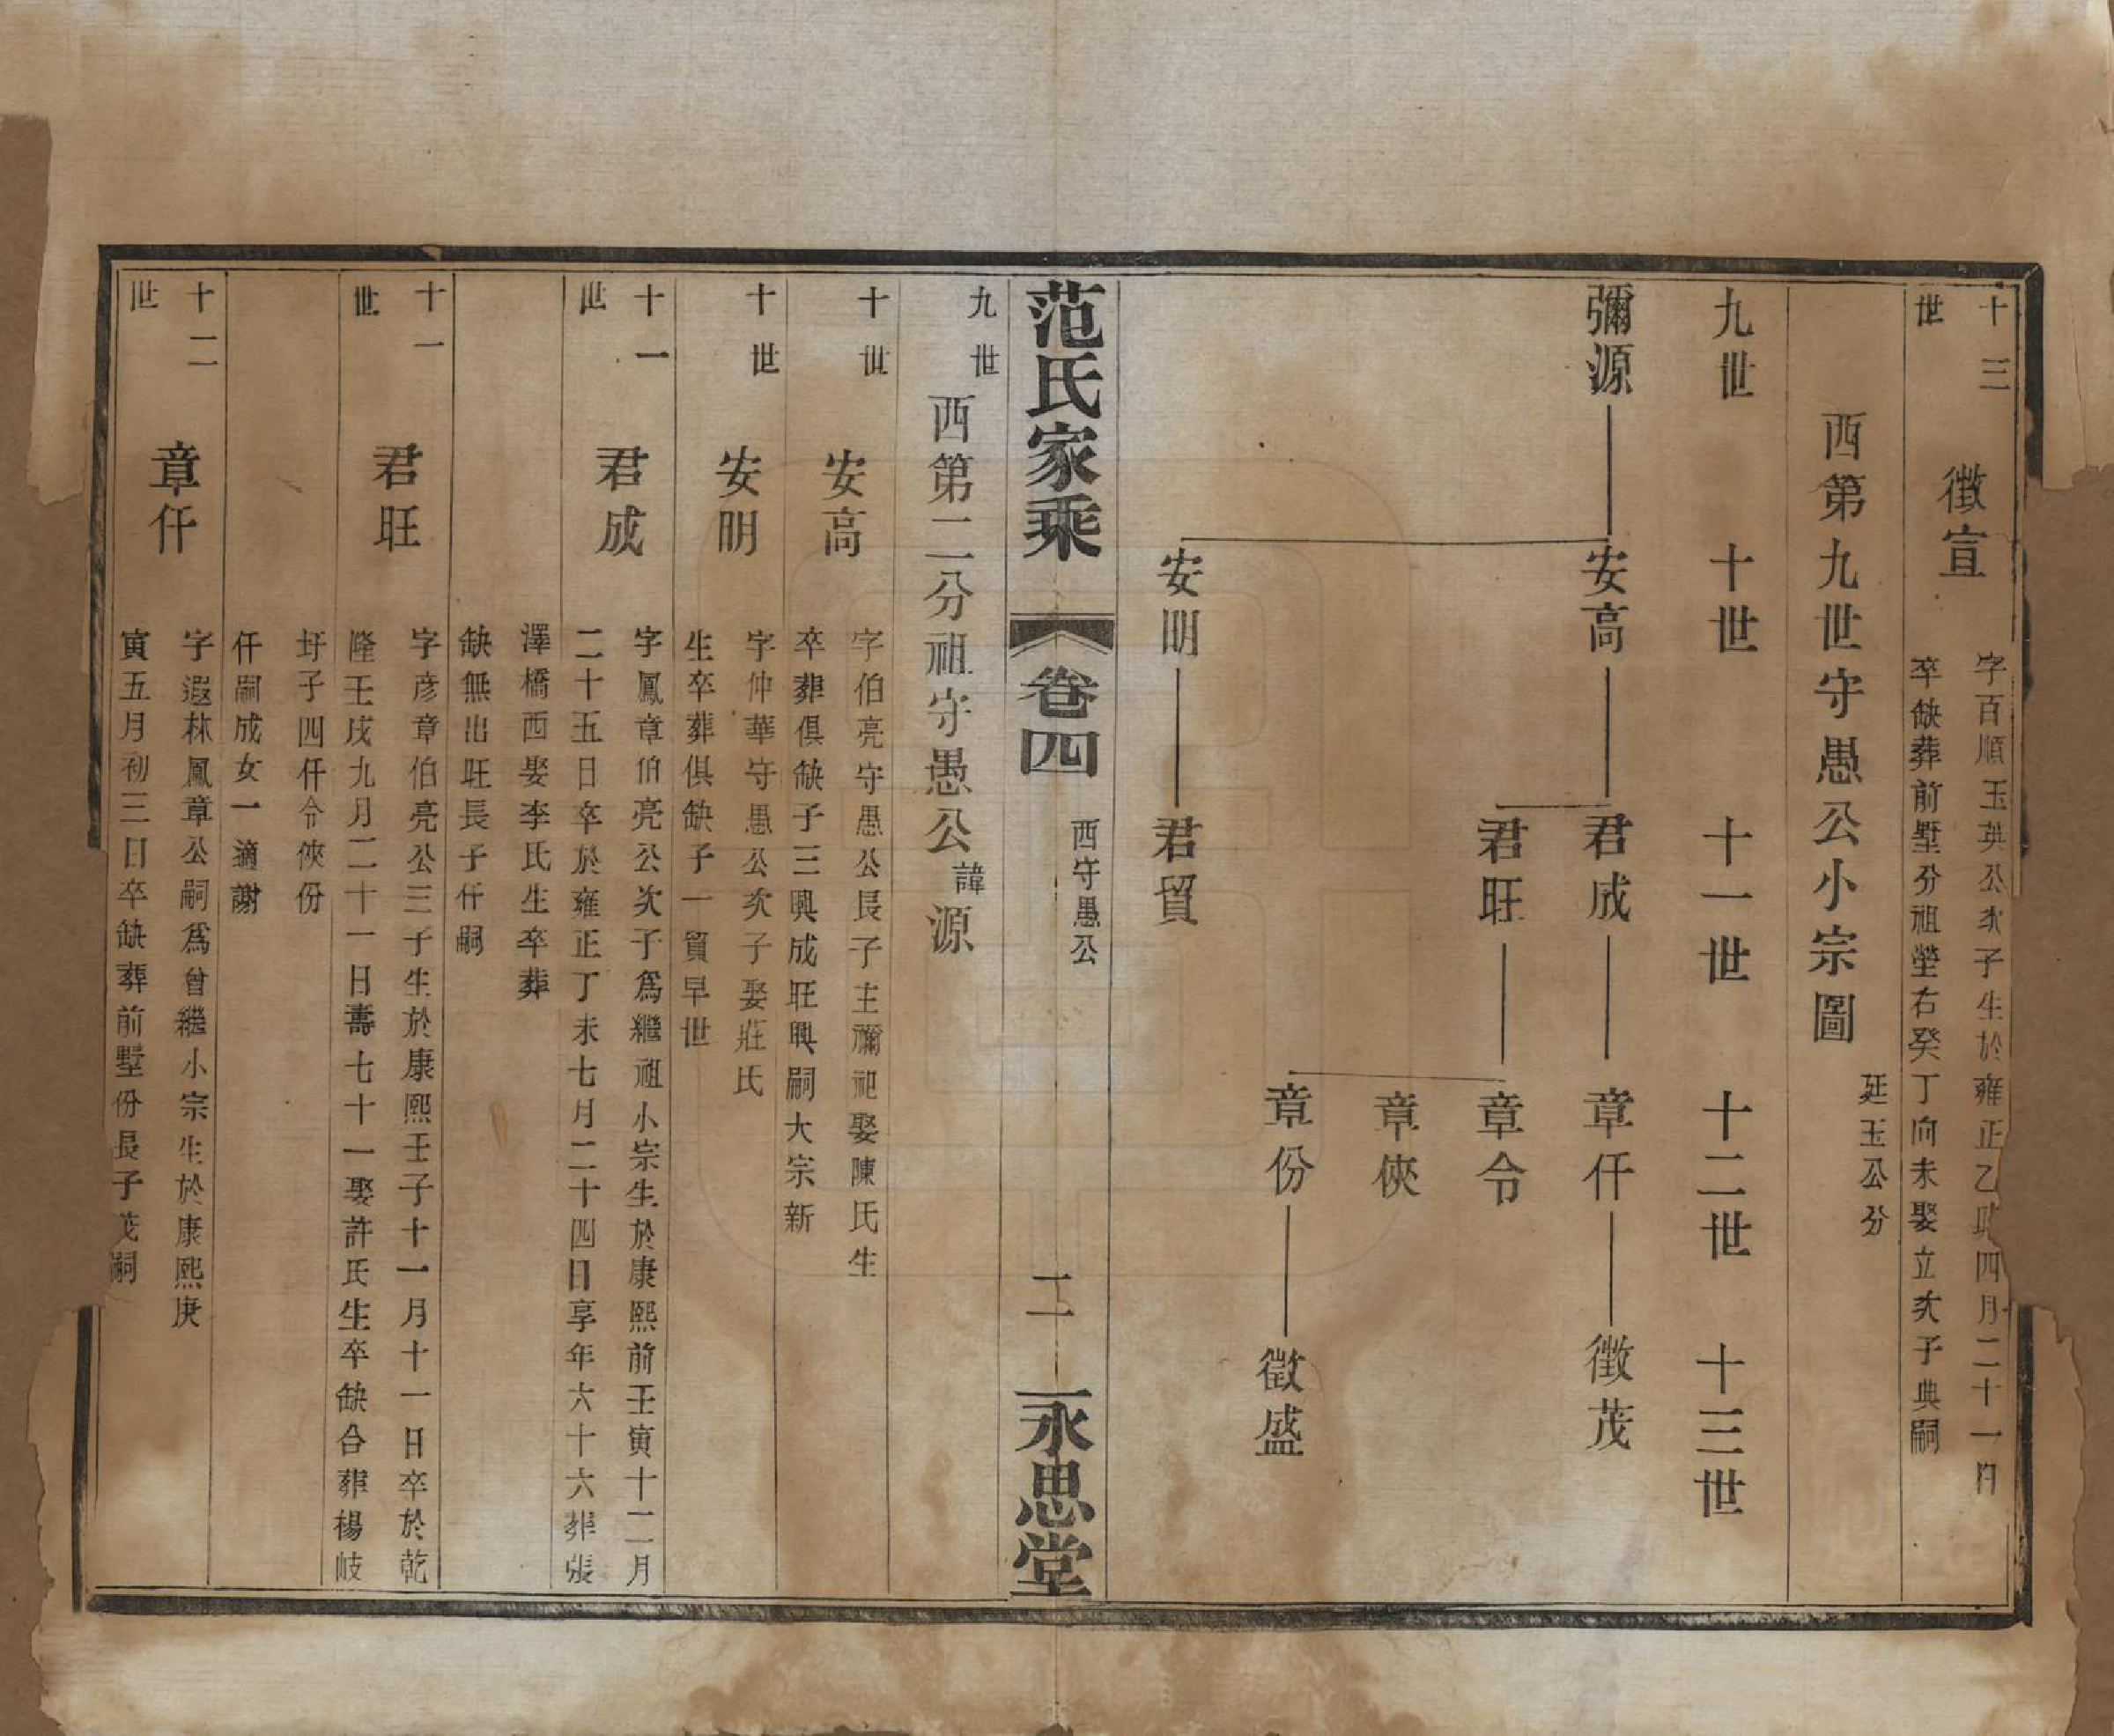 十三世
徵宣
字百順玉英公次子生於雍正乙 四月二十一日
卒缺葬前墅分祖塋右癸丁向未娶立次子典嗣
西第九世守愚公小宗圖
延玉公分
九世 十世 十一世 十二世 十三世
彌源 安高 君成 章仟 徵茂
君旺 章令
章俠
章份 徵盛
安明 君貿
范氏家乘 卷四 西守愚公 二 永思堂
九世
西第二分祖守愚公諱源
十世
安高
字伯亮守愚公長子主禰祀娶陳氏生
卒葬俱缺子三興成旺興嗣大宗新
十世
安明
字仲華守愚公次子娶莊氏
生卒葬俱缺子一貿早世
十一世
君成
字鳳章伯亮公次子為繼祖小宗生於康熙前壬寅十二月
二十五日卒於雍正丁未七月二十四日享年六十六葬張
澤橋西娶李氏生卒葬
缺無出旺長子仟嗣
十一世
君旺
字彦章伯亮公三子生於康熙壬子十一月十一日卒於乾
隆壬戌九月二十一日壽七十一娶許氏生卒缺合葬楊岐
圩子四仟令俠份
仟嗣成女一適謝
十二世
章仟
字遐林鳳章公嗣為曾繼小宗生於康熙庚
寅五月初三日卒缺葬前墅份長子茂嗣